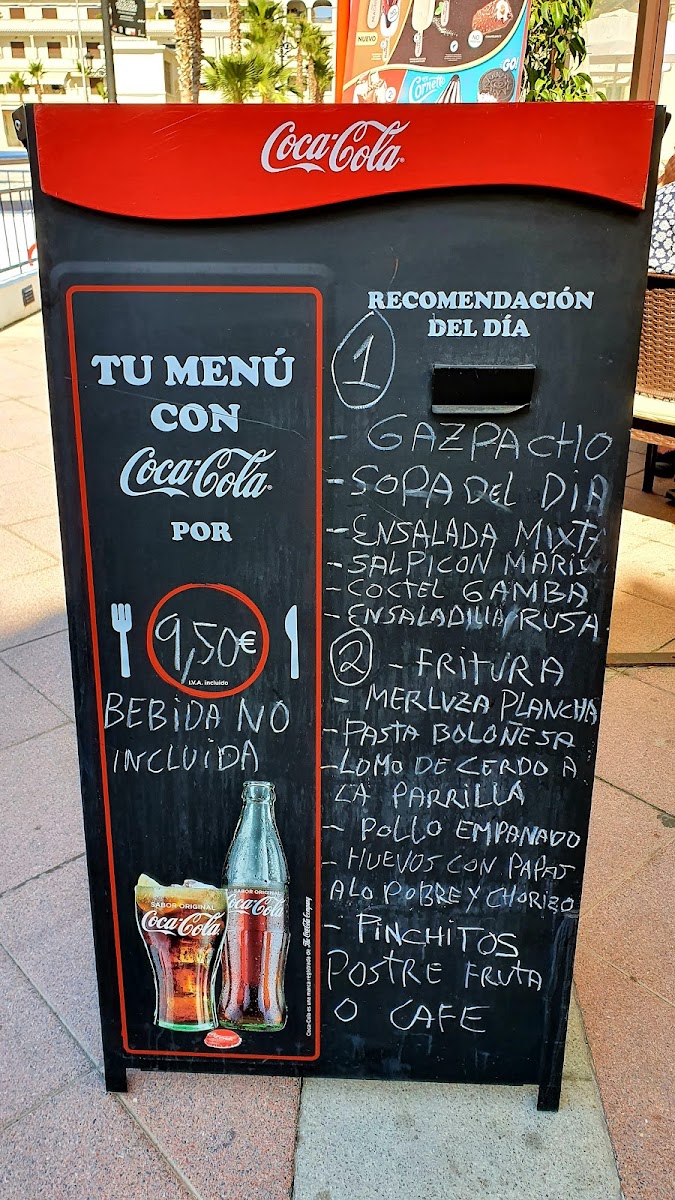 NUEVO
Cornetto
GO!
Coca-Cola
TU MENÚ
CON
Coca-Cola
POR
9,50€
I.V.A. incluido
BEBIDA NO
INCLUIDA
SABOR ORIGINAL
Coca-Cola
SABOR ORIGINAL
Coca-Cola
Coca-Cola es una marca registrada de The Coca-Cola Company
RECOMENDACIÓN
DEL DÍA
1
- GAZPACHO
- SOPA DEL DIA
- ENSALADA MIXTA
- SALPICON
- COCTEL GAMBA
- ENSALADILLA RUSA
2 - FRITURA
- MERLUZA PLANCHA
- PASTA BOLOÑESA
- LOMO DE CERDO A
LA PARRILLA
- POLLO EMPANADO
- HUEVOS CON PAPAS
A LO POBRE Y CHORIZO
- PINCHITOS
POSTRE FRUTA
O CAFE